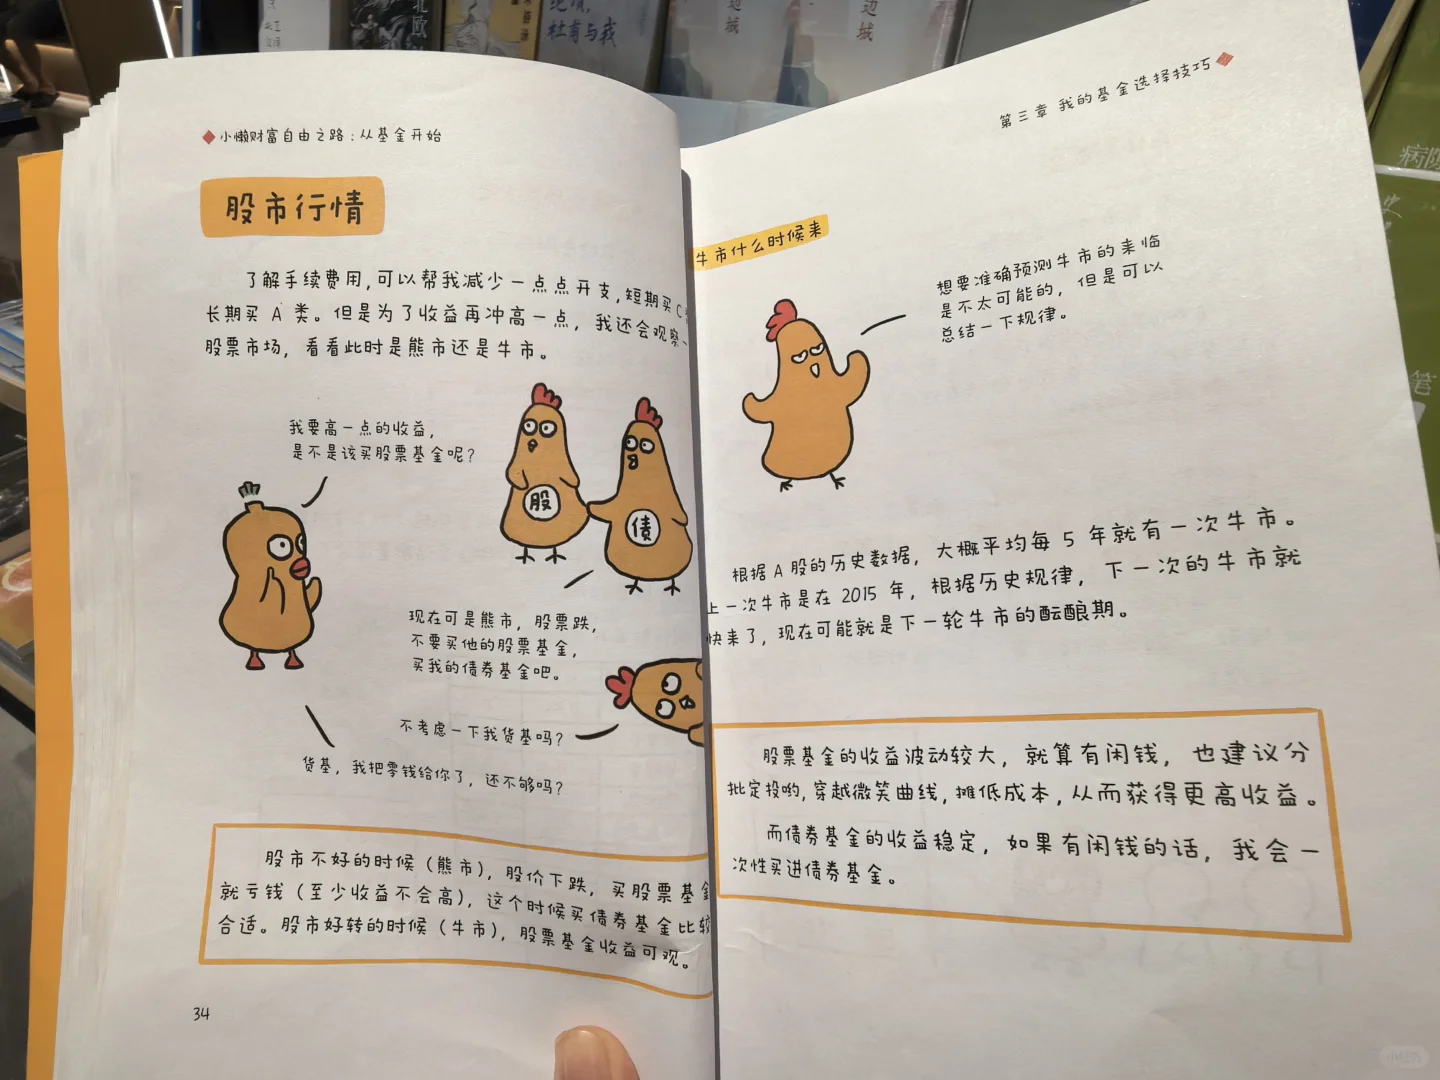 小懒财富自由之路：从基金开始
股市行情
了解手续费用，可以帮我减少一点点开支，短期买C
长期买 A 类。但是为了收益再冲高一点，我还会观察一
股票市场，看看此时是熊市还是牛市。
我要高一点的收益，
是不是该买股票基金呢？
股
债
现在可是熊市，股票跌，
不要买他的股票基金，
买我的债券基金吧。
不考虑一下我货基吗？
货基，我把零钱给你了，还不够吗？
股市不好的时候（熊市），股价下跌，买股票基金
就亏钱（至少收益不会高），这个时候买债券基金比较
合适。股市好转的时候（牛市），股票基金收益可观。
34
第三章 我的基金选择技巧
牛市什么时候来
想要准确预测牛市的来临
是不太可能的，但是可以
总结一下规律。
根据 A 股的历史数据，大概平均每 5 年就有一次牛市。
上一次牛市是在 2015 年，根据历史规律，下一次的牛市就
快来了，现在可能就是下一轮牛市的酝酿期。
股票基金的收益波动较大，就算有闲钱，也建议分
批定投哟，穿越微笑曲线，摊低成本，从而获得更高收益。
而债券基金的收益稳定，如果有闲钱的话，我会一
次性买进债券基金。
北欧
杜甫与我
边城
边城
病隙
笔
小红书